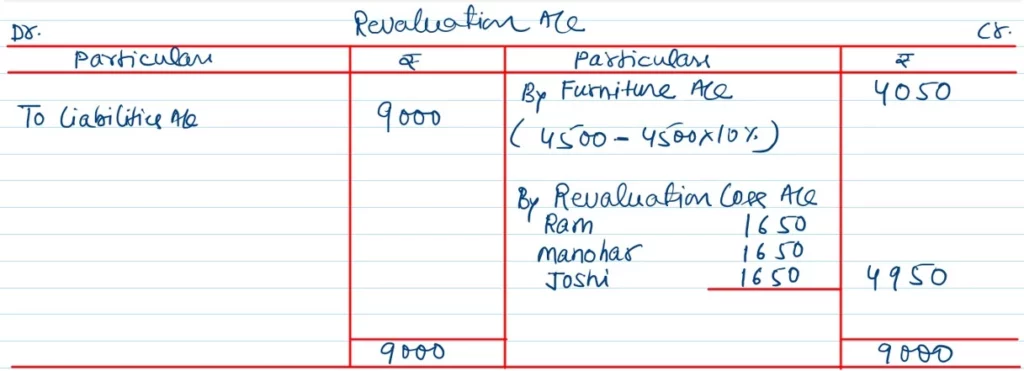 Revaluation A/c
Dr. Cr.
Particulars ₹ Particulars ₹
To Liabilities A/c 9000 By Furniture A/c 4050
( 4500 - 4500×10%)
By Revaluation Loss A/c
Ram 1650
Manohar 1650
Joshi 1650 4950
9000 9000